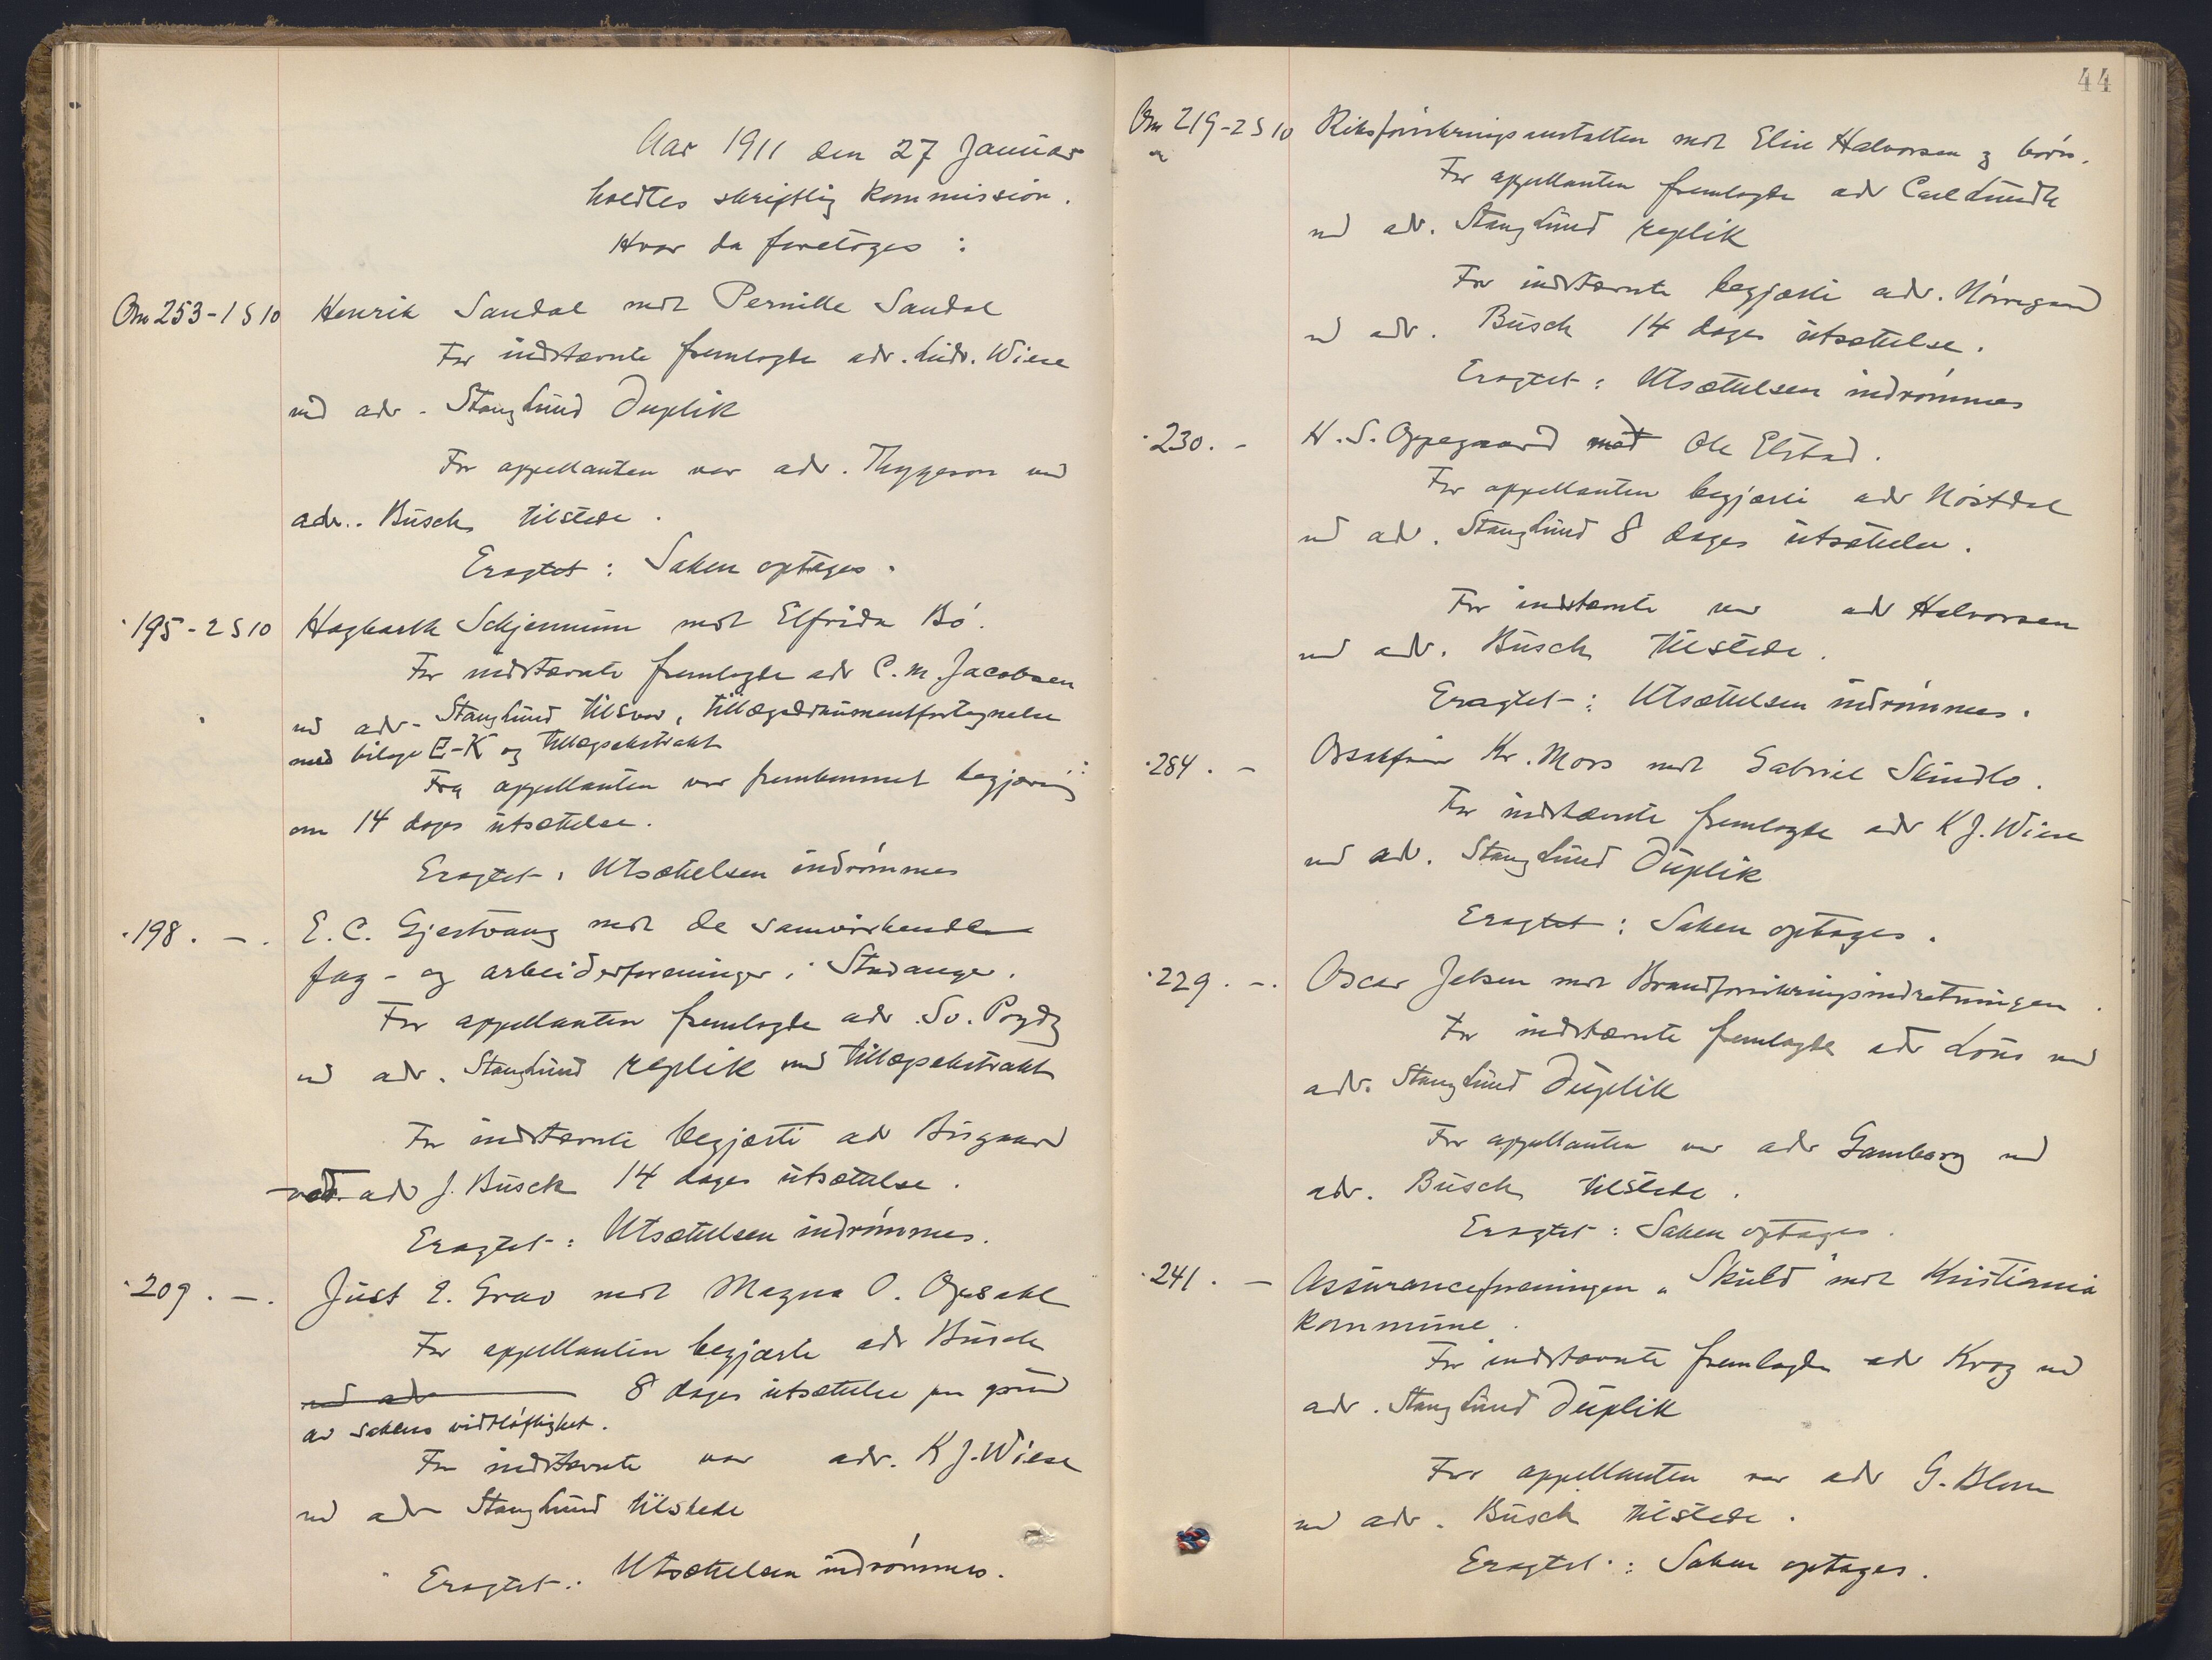 Aar 1911 den 27 Januar
holdtes skriftlig kommission.
Hvor da foretoges :
Om 253-1 S 10 Henrik Sandal mot Pernille Sandal
For indstævnte fremlagde adv. Ludv. Wiese
ved adv. Stang Lund Duplik
For appellanten var adv. Thygeson ved
adv. Busch tilstede.
Eragtet : Saken optages.
195-2 S 10 Hagbarth Schjennum mot Elfrida Bö.
For indstævnte fremlagde adv C. M. Jacobsen
ved adv. Stang Lund tilsvar, tillægsdokumentfortegnelse
med bilage E-K og tillægsekstrakt
Fra appellanten var fremkommet begjæring
om 14 dages utsættelse.
Eragtet : Utsættelsen indrömmes
198. - . E. C. Gjestvang mot de samvirkende
fag- og arbeiderforeninger i Stavanger.
For appellanten fremlagde adv. Sv.
ved adv. Stang Lund replik med tillægsekstrakt
For indstævnte begjærte adv Bisgaard
ved adv J. Busch 14 dages utsættelse.
Eragtet : Utsættelsen indrömmes.
209. - . Just E. Grav mot Magna O. Opsahl
For appellanten begjærte adv Busch
ved adv 8 dages utsættelse paa grund
av sakens vidtlöftighet.
For indstævnte var adv. K J. Wiese
ved adv Stang Lund tilstede
Eragtet : Utsættelsen indrömmes.
44
Om 219-2 S 10 Riksforsikringsanstalten mot Elise Halvorsen og börn.
For appellanten fremlagde adv Carl Lundh
ved adv. Stang Lund replik
For indstævnte begjærte adv. Nörregaard
ved adv. Busch 14 dages utsættelse.
Eragtet : Utsættelsen indrömmes
230. - H. S. Oppegaard mot Ole Elstad.
For appellanten begjærte adv Nöstdal
ved adv. Stang Lund 8 dages utsættelse.
For indstævnte var adv Halvorsen
ved adv. Busch tilstede.
Eragtet : Utsættelsen indrömmes.
284. - Kr. Mors mot Gabriel Skindlo.
For indstævnte fremlagde adv K J. Wiese
ved adv. Stang Lund Duplik
Eragtet : Saken optages.
229. - . Oscar Jebsen mot Brandforsikringsindretningen.
For indstævnte fremlagde adv Lous ved
adv. Stang Lund Duplik
For appellanten var adv Gamborg ved
adv. Busch tilstede.
Eragtet : Saken optages.
241. - Assuranceforeningen "Skuld" mot Kristiania
kommune.
For indstævnte fremlagde adv Krog ved
adv. Stang Lund Duplik
For appellanten var adv G. Blom
ved adv. Busch tilstede.
Eragtet : Saken optages.